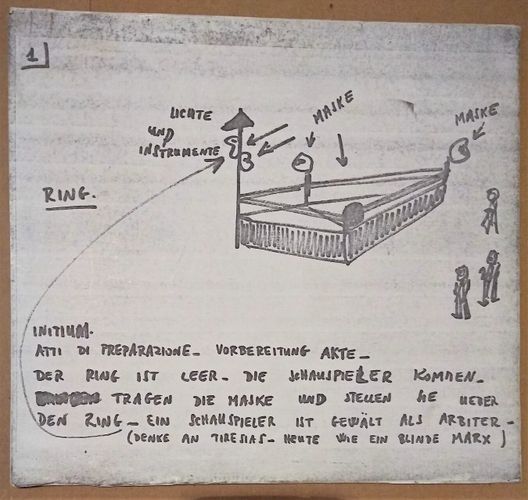 1
LICHTE
UND
INSTRUMENTE
MASKE
MASKE
RING.
INITIUM.
ATTI DI PREPARAZIONE_ VORBEREITUNG AKTE_
DER RING IST LEER_ DIE SCHAUSPIELER KOMMEN_
TRAGEN DIE MASKE UND STELLEN SIE UEBER
DEN RING_ EIN SCHAUSPIELER IST GEWÄLT ALS ARBITER_
(DENKE AN TIRESIAS_ HEUTE WIE EIN BLINDE MARX)